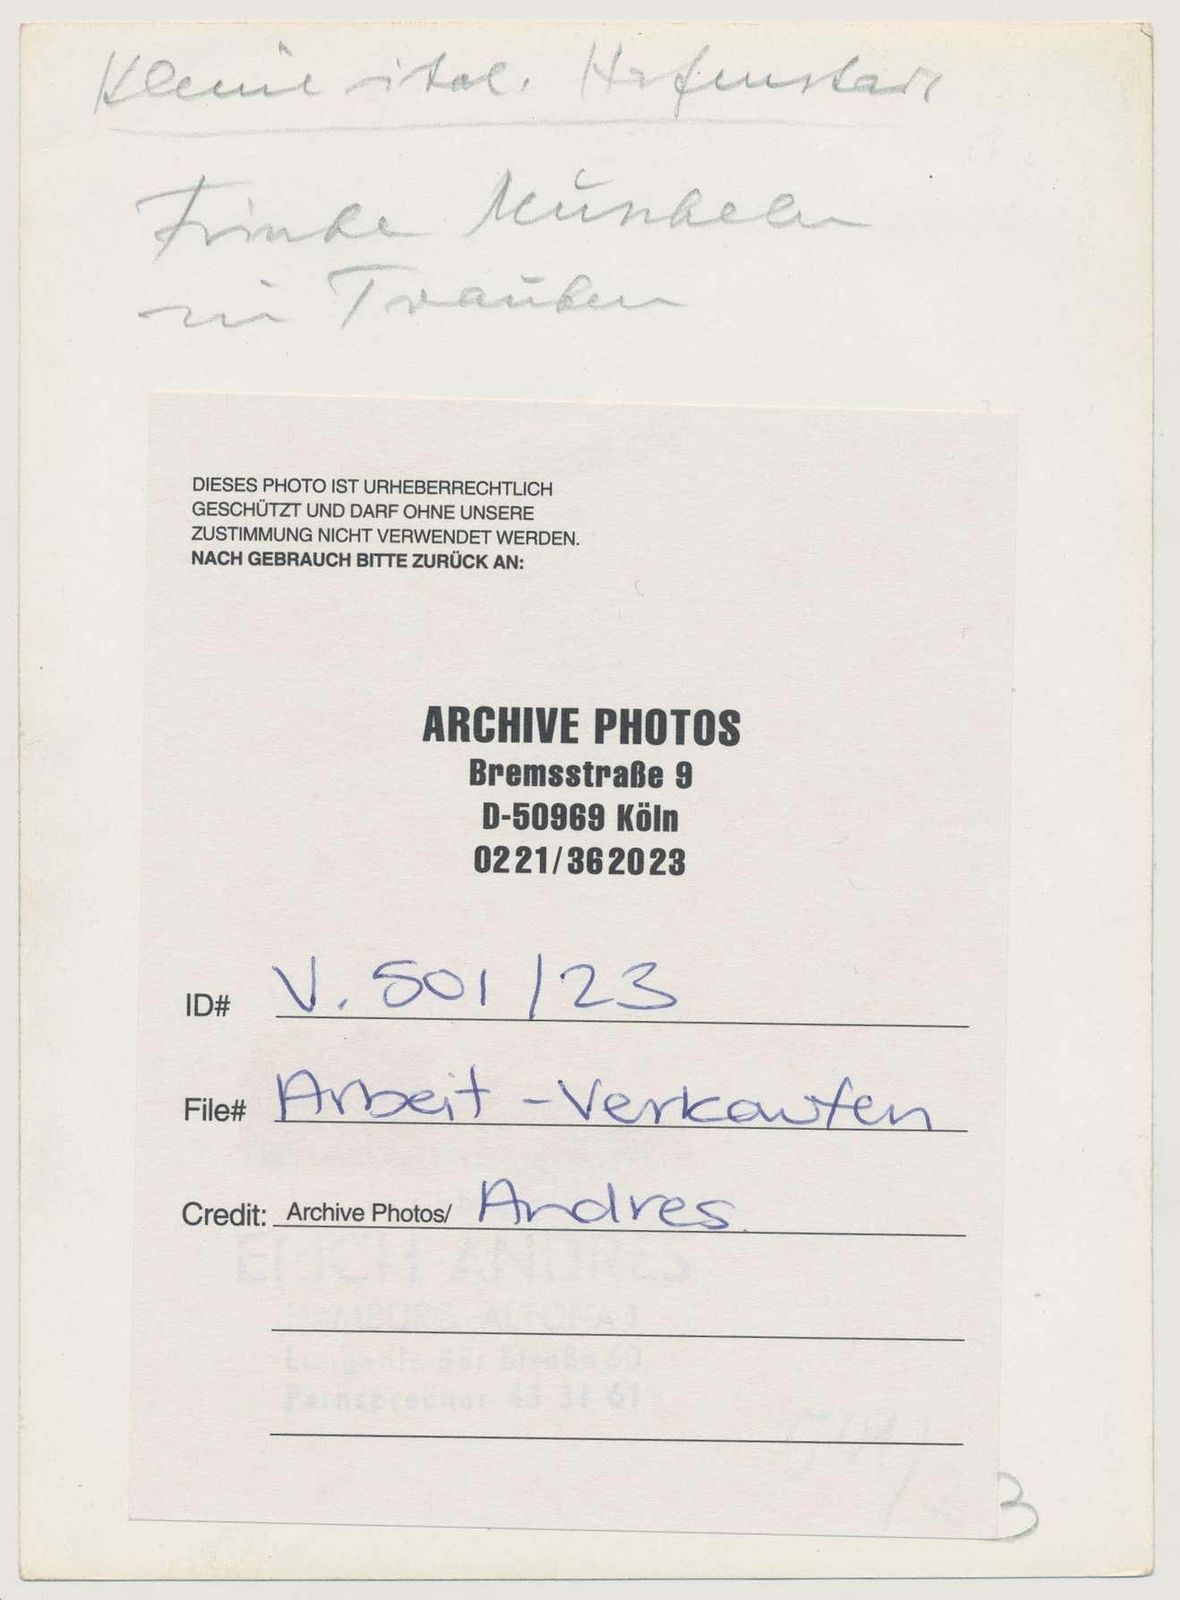 Kleine ital. Hafenstadt
Frische Muscheln
in Trauben
DIESES PHOTO IST URHEBERRECHTLICH
GESCHÜTZT UND DARF OHNE UNSERE
ZUSTIMMUNG NICHT VERWENDET WERDEN.
NACH GEBRAUCH BITTE ZURÜCK AN:
ARCHIVE PHOTOS
Bremsstraße 9
D-50969 Köln
0221/362023
ID# V. 501/23
File# Arbeit - Verkaufen
Credit: Archive Photos/ Andres
ERICH ANDRES
HAMBURG-ALTONA 1
Straße 60
Fernsprecher 43 31 61
3